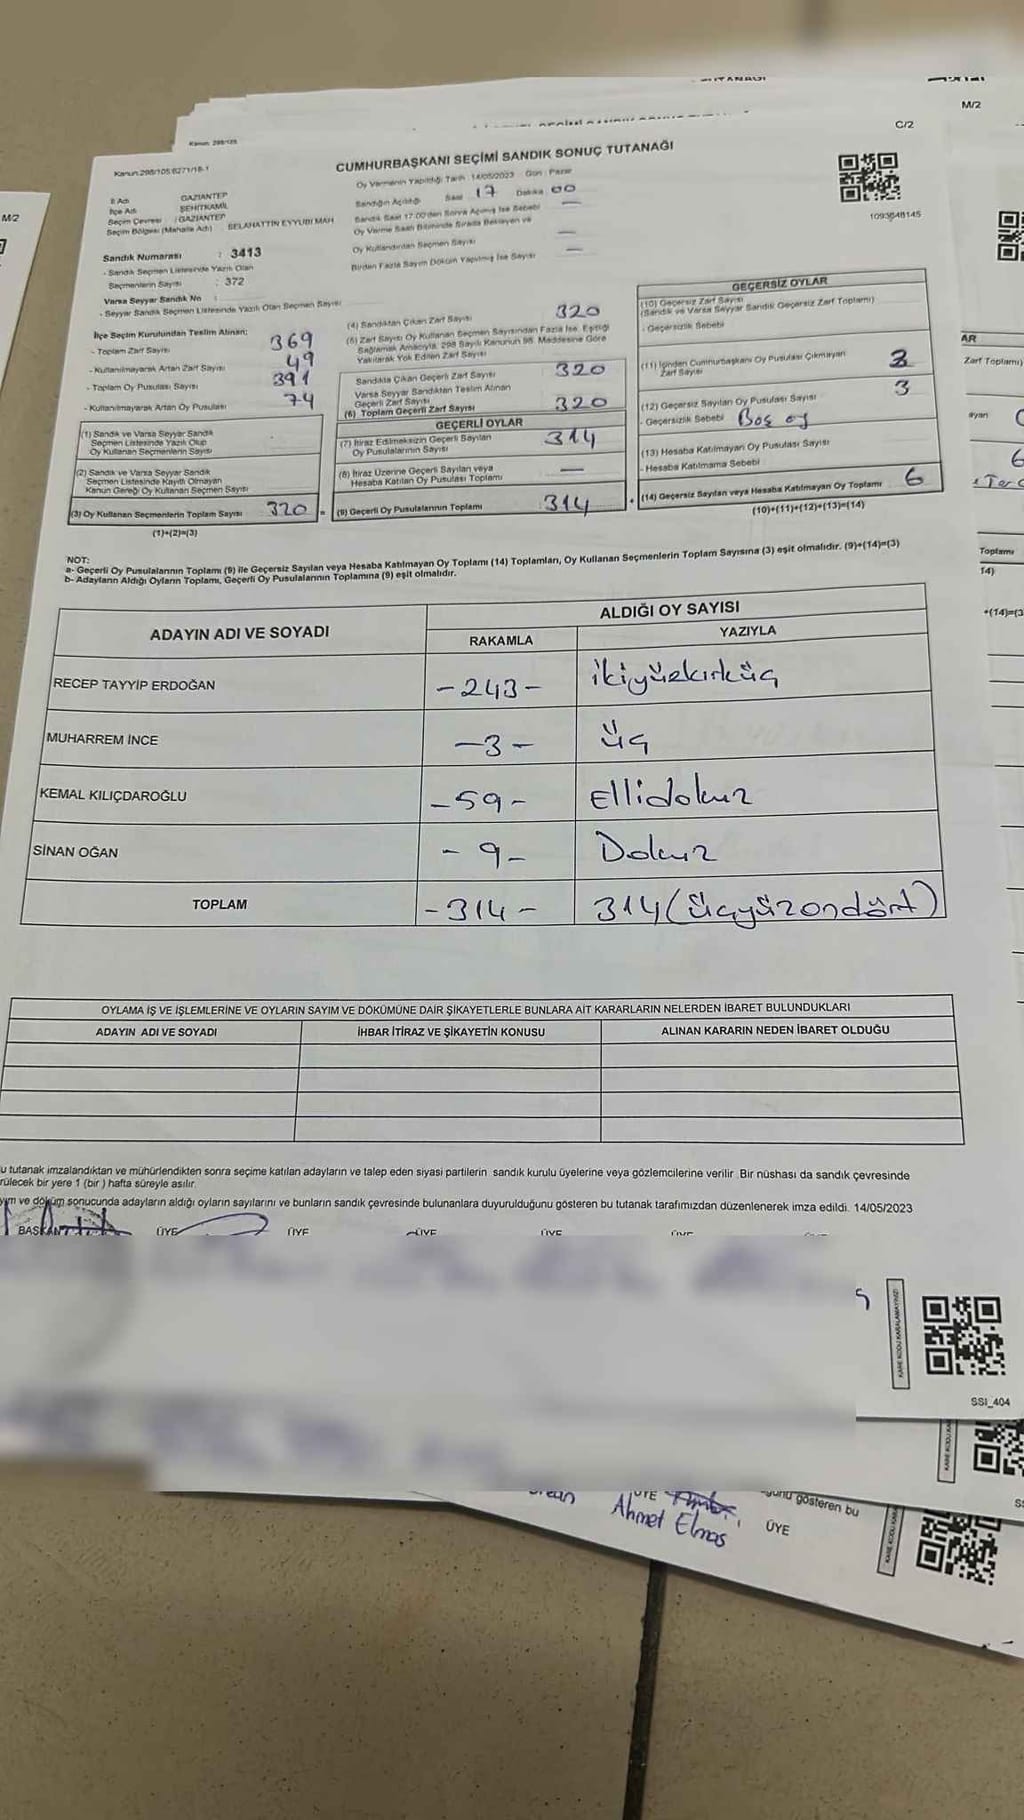 TUTANAĞI
M/2
C/2
Kanun:298/105,6271/18-1
CUMHURBAŞKANI SEÇİMİ SANDIK SONUÇ TUTANAĞI
1093648145
İl Adı GAZİANTEP
İlçe Adı ŞEHİTKAMİL
Seçim Çevresi : GAZİANTEP
Seçim Bölgesi (Mahalle Adı) SELAHATTİN EYYUBİ MAH
Oy Vermenin Yapıldığı Tarih 14/05/2023 Gün : Pazar
Sandığın Açıldığı Saat 17 Dakika 00
Sandık Saat 17:00'den Sonra Açılmış İse Sebebi —
Oy Verme Saati Bitiminde Sırada Bekleyen ve
Oy Kullandırılan Seçmen Sayısı —
Birden Fazla Sayım Döküm Yapılmış İse Sayısı —
Sandık Numarası : 3413
- Sandık Seçmen Listesinde Yazılı Olan
Seçmenlerin Sayısı : 372
Varsa Seyyar Sandık No :
- Seyyar Sandık Seçmen Listesinde Yazılı Olan Seçmen Sayısı
İlçe Seçim Kurulundan Teslim Alınan;
- Toplam Zarf Sayısı 369
- Kullanılmayarak Artan Zarf Sayısı 49
- Toplam Oy Pusulası Sayısı 391
- Kullanılmayarak Artan Oy Pusulası 74
(1) Sandık ve Varsa Seyyar Sandık
Seçmen Listesinde Yazılı Olup
Oy Kullanan Seçmenlerin Sayısı
(2) Sandık ve Varsa Seyyar Sandık
Seçmen Listesinde Kayıtlı Olmayan
Kanun Gereği Oy Kullanan Seçmen Sayısı
(3) Oy Kullanan Seçmenlerin Toplam Sayısı 320 =
(1)+(2)=(3)
(4) Sandıktan Çıkan Zarf Sayısı 320
(5) Zarf Sayısı Oy Kullanan Seçmen Sayısından Fazla İse, Eşitliği
Sağlamak Amacıyla, 298 Sayılı Kanunun 98. Maddesine Göre
Yakılarak Yok Edilen Zarf Sayısı
Sandıkta Çıkan Geçerli Zarf Sayısı 320
Varsa Seyyar Sandıktan Teslim Alınan
Geçerli Zarf Sayısı
(6) Toplam Geçerli Zarf Sayısı 320
GEÇERLİ OYLAR
(7) İtiraz Edilmeksizin Geçerli Sayılan
Oy Pusulalarının Sayısı 314
(8) İtiraz Üzerine Geçerli Sayılan veya
Hesaba Katılan Oy Pusulası Toplamı —
(9) Geçerli Oy Pusulalarının Toplamı 314 +
GEÇERSİZ OYLAR
(10) Geçersiz Zarf Sayısı
(Sandık ve Varsa Seyyar Sandık Geçersiz Zarf Toplamı)
- Geçersizlik Sebebi
(11) İçinden Cumhurbaşkanı Oy Pusulası Çıkmayan
Zarf Sayısı 3
(12) Geçersiz Sayılan Oy Pusulası Sayısı 3
- Geçersizlik Sebebi Boş oy
(13) Hesaba Katılmayan Oy Pusulası Sayısı
- Hesaba Katılmama Sebebi
(14) Geçersiz Sayılan veya Hesaba Katılmayan Oy Toplamı 6
(10)+(11)+(12)+(13)=(14)
NOT:
a- Geçerli Oy Pusulalarının Toplamı (9) ile Geçersiz Sayılan veya Hesaba Katılmayan Oy Toplamı (14) Toplamları, Oy Kullanan Seçmenlerin Toplam Sayısına (3) eşit olmalıdır. (9)+(14)=(3)
b- Adayların Aldığı Oyların Toplamı, Geçerli Oy Pusulalarının Toplamına (9) eşit olmalıdır.
ADAYIN ADI VE SOYADI
ALDIĞI OY SAYISI
RAKAMLA YAZIYLA
RECEP TAYYİP ERDOĞAN -243- ikiyüzkırküç
MUHARREM İNCE -3- üç
KEMAL KILIÇDAROĞLU -59- Ellidokuz
SİNAN OĞAN -9- Dokuz
TOPLAM -314- 314 (üçyüzondört)
OYLAMA İŞ VE İŞLEMLERİNE VE OYLARIN SAYIM VE DÖKÜMÜNE DAİR ŞİKAYETLERLE BUNLARA AİT KARARLARIN NELERDEN İBARET BULUNDUKLARI
ADAYIN ADI VE SOYADI İHBAR İTİRAZ VE ŞİKAYETİN KONUSU ALINAN KARARIN NEDEN İBARET OLDUĞU
u tutanak imzalandıktan ve mühürlendikten sonra seçime katılan adayların ve talep eden siyasi partilerin sandık kurulu üyelerine veya gözlemcilerine verilir. Bir nüshası da sandık çevresinde
rülecek bir yere 1 (bir) hafta süreyle asılır.
yım ve döküm sonucunda adayların aldığı oyların sayılarını ve bunların sandık çevresinde bulunanlara duyurulduğunu gösteren bu tutanak tarafımızdan düzenlenerek imza edildi. 14/05/2023
BAŞKAN ÜYE ÜYE ÜYE ÜYE ÜYE
KARE KODU KARALAMAYINIZ!
SSI_404
gösteren bu
ÜYE
Ahmet Elmas
ÜYE
M/2
AR
Zarf Toplamı)
ayan
6
Toplamı
14)
+(14)=(3